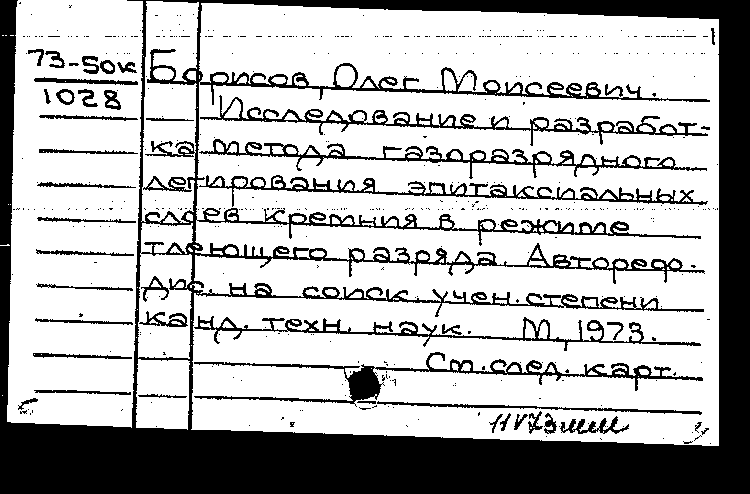 73-50к
1028
Борисов, Олег Моисеевич.
Исследование и разработ-
ка метода газоразрядного
легирования эпитаксиальных
слоев кремния в режиме
тлеющего разряда. Автореф.
дис. на соиск. учен. степени
канд. техн. наук. М., 1973.
См. след. карт.